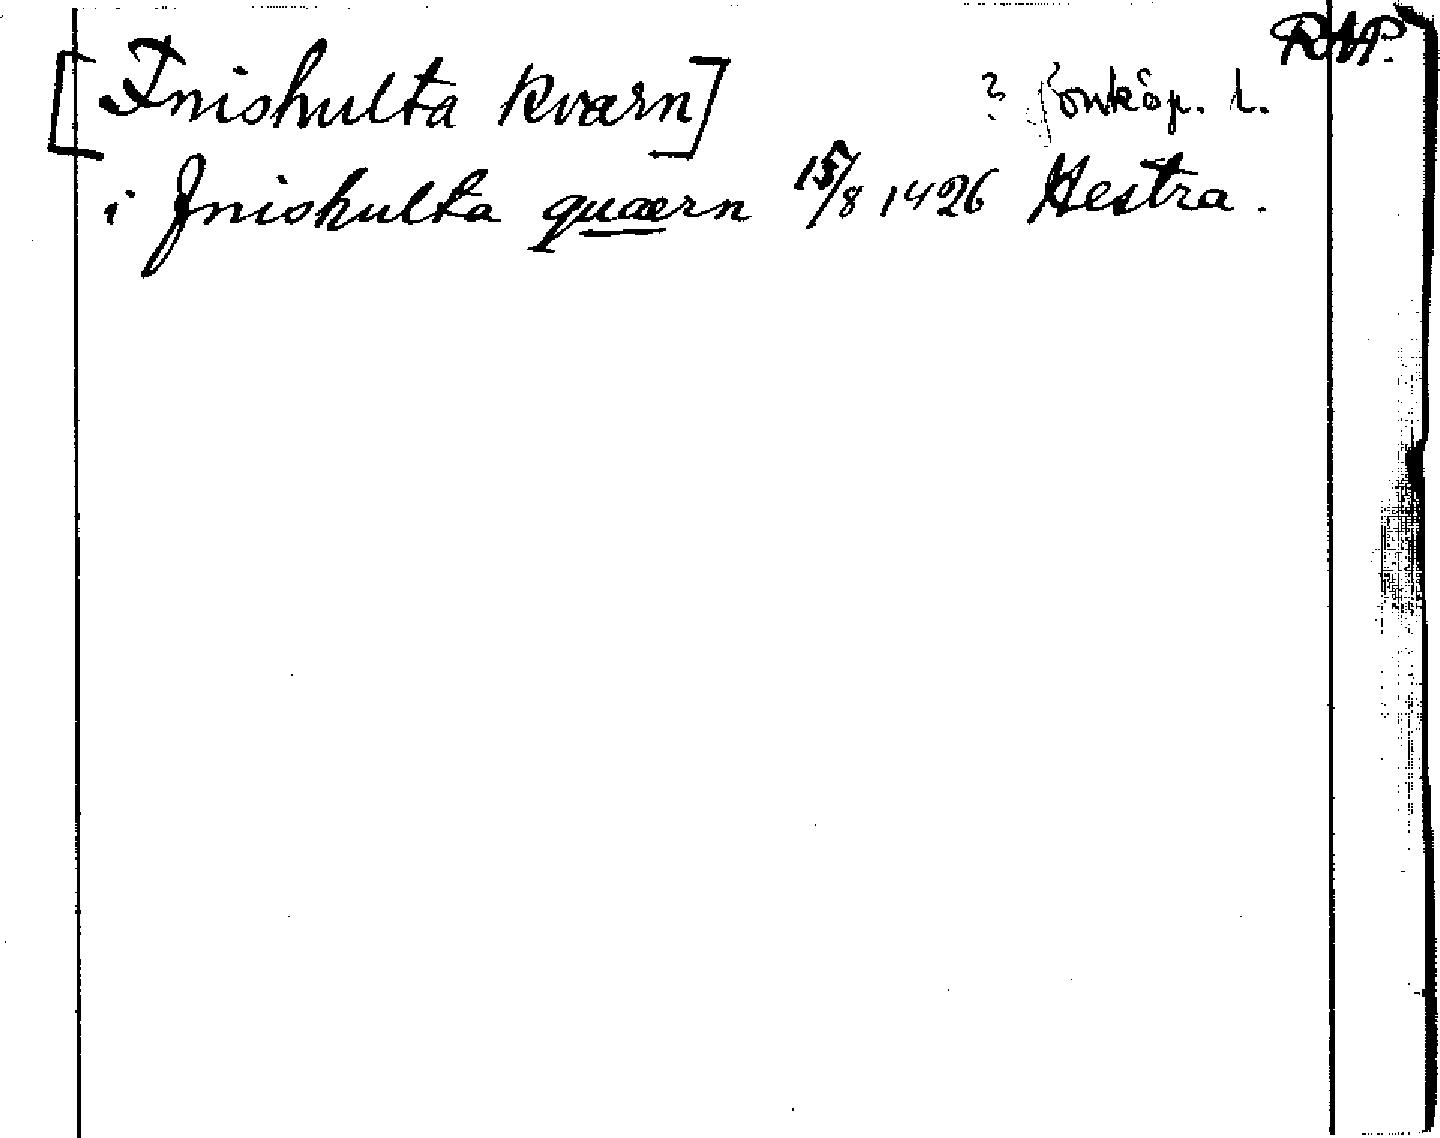 RAP.
[Inishulta kvarn] ? Jonköp. L.
i Jnishulta quærn 15/8 1426 Hestra.